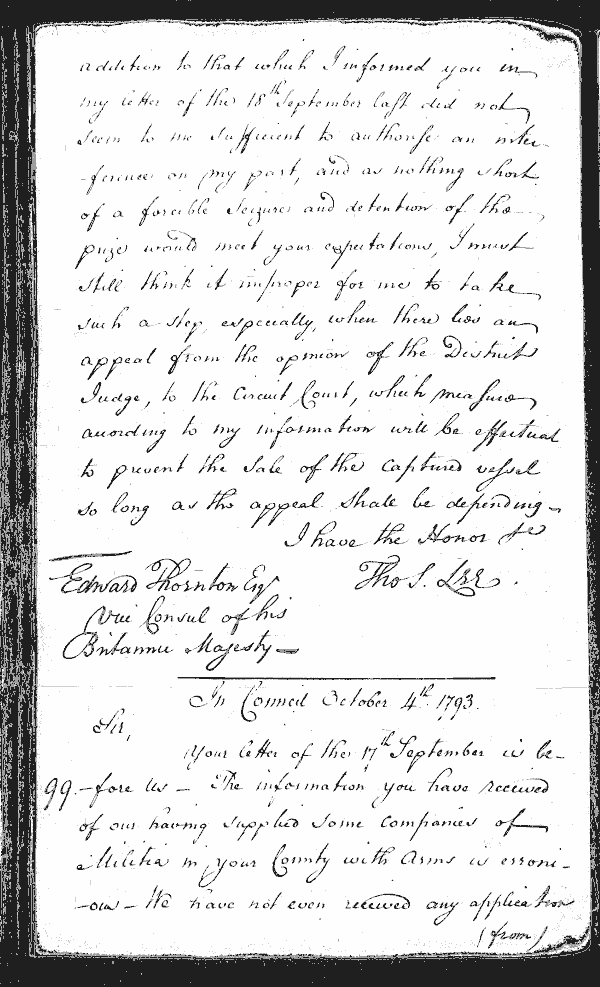 addition to that which I informed you in
my letter of the 18th September last did not
seem to me sufficient to authorise an inter-
-ference on my part, and as nothing short
of a forcible Seizure and detention of the
prize would meet your expectations, I must
still think it improper for me to take
such a step, especially, when there lies an
appeal from the opinion of the District
Judge, to the Circuit Court, which measure
according to my information will be effectual
to prevent the Sale of the Captured vessel
so long as the appeal shall be depending-
I have the Honor &c
Edward Thornton Esqr
Vice Consul of his
Britannic Majesty-
Tho S. Lee.
In Council October 4th 1793.
Sir,
Your letter of the 17th September is be-
99. -fore us - The information you have received
of our having supplied some companies of
Militia in your County with Arms is erroni-
-ous - We have not even received any application
(from)